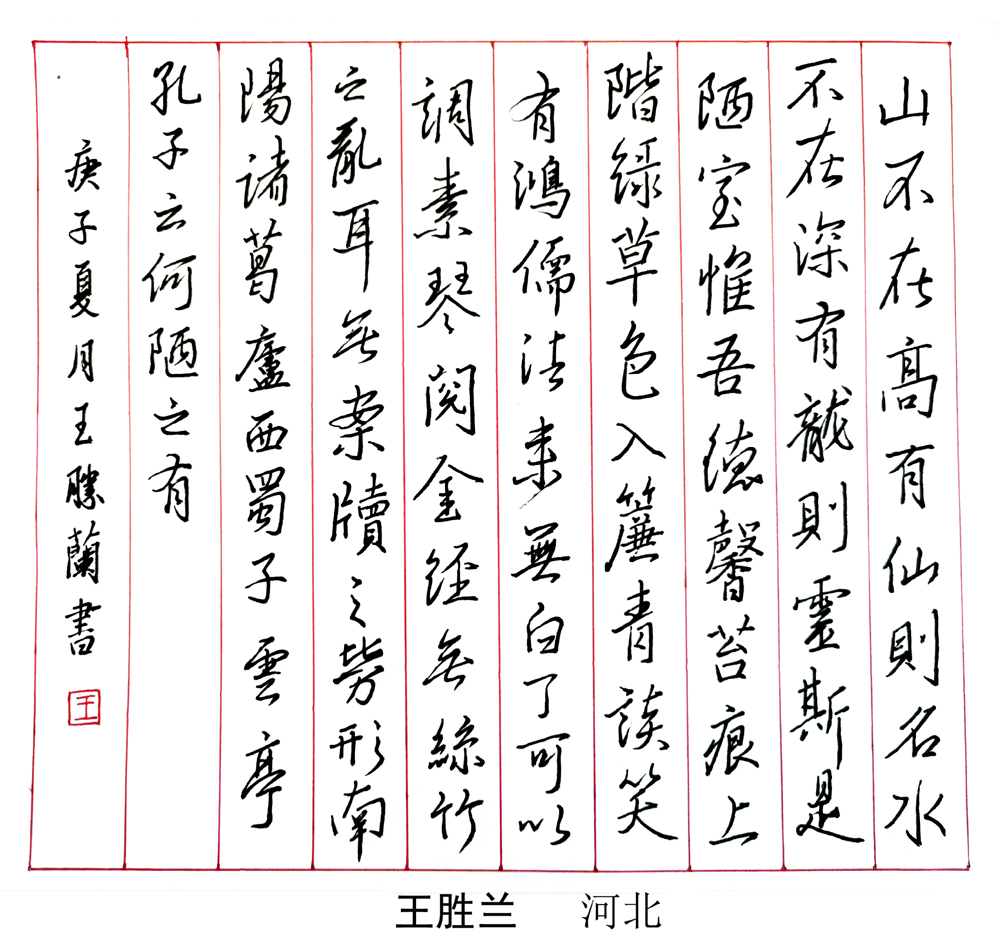 山不在高有仙則名水
不在深有龍則靈斯是
陋室惟吾德馨苔痕上
階緑草色入簾青談笑
有鴻儒往来無白丁可以
調素琴閱金經無絲竹
之亂耳無案牘之勞形南
陽諸葛廬西蜀子雲亭
孔子云何陋之有
庚子夏月王勝蘭書
王
王胜兰 河北